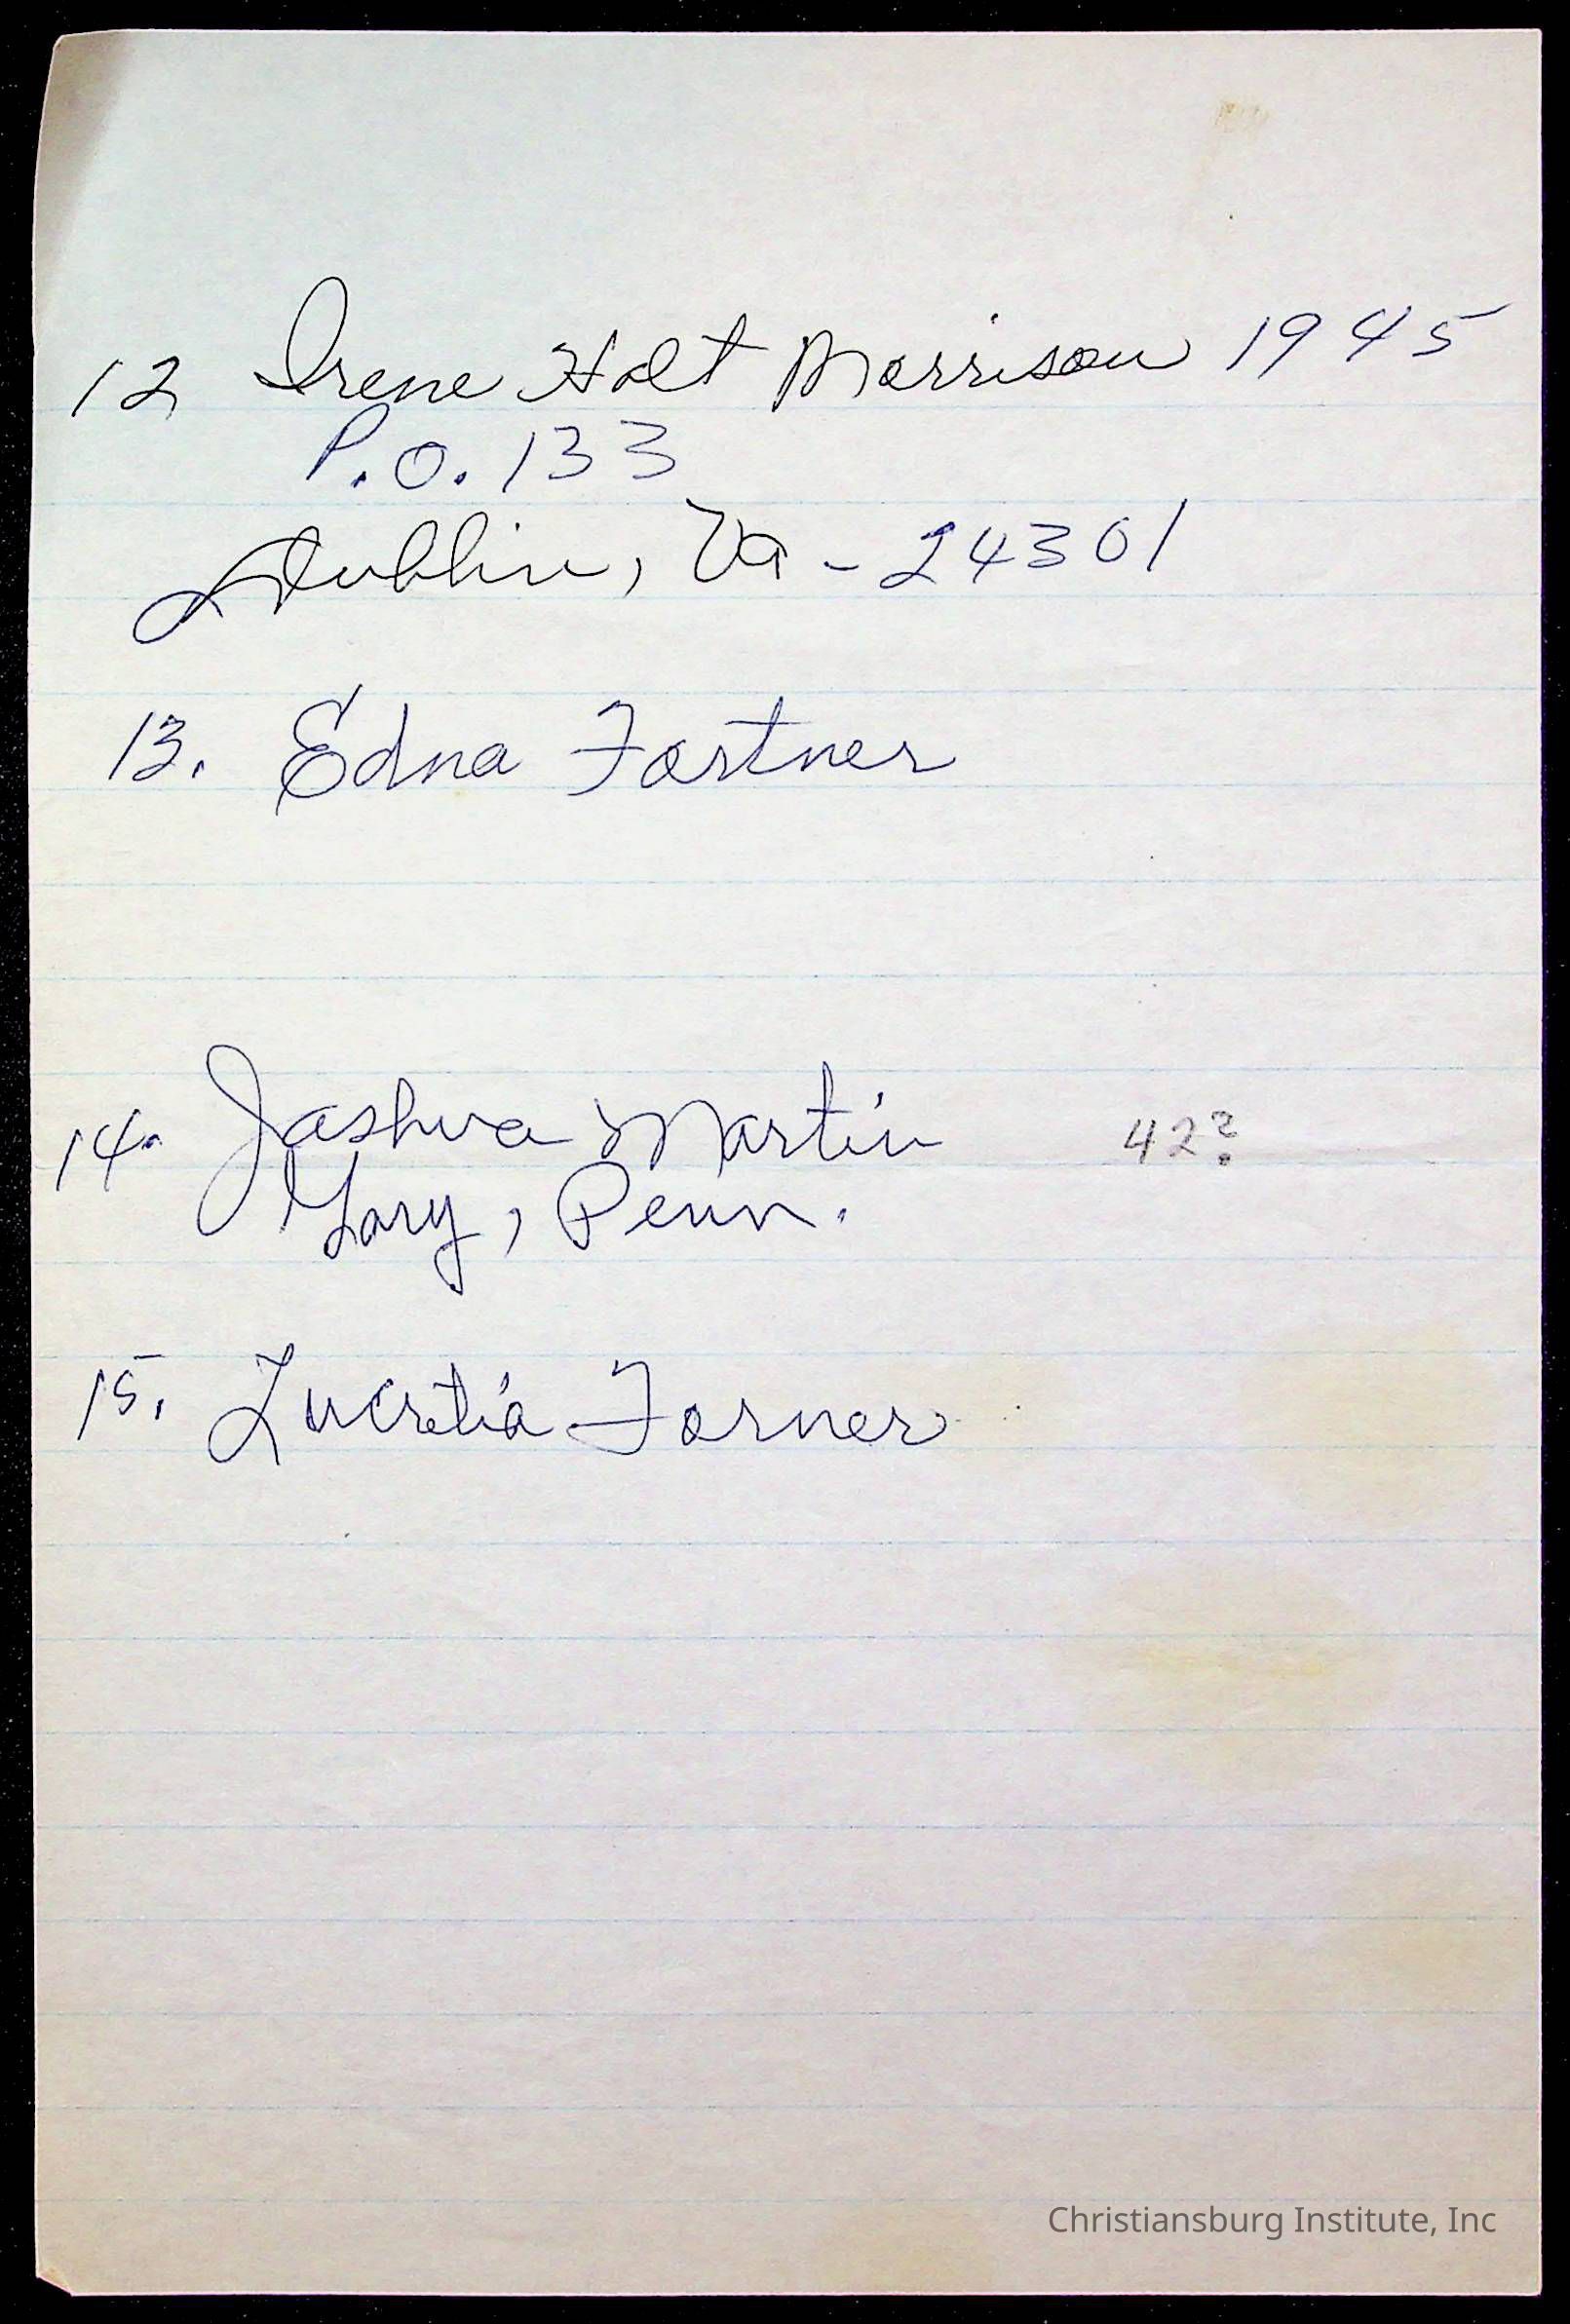 12 Irene Holt Morrison 1945
P.O. 133
Dublin, Va - 24301
13. Edna Fortner
14. Joshua Martin 42?
Gary, Penn.
15. Lucretia Forner
Christiansburg Institute, Inc